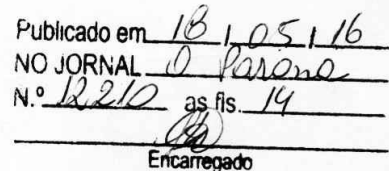 Publicado em 18 / 05 / 16
NO JORNAL O Paraná
N.º 12.210 as fls. 14
Encarregado